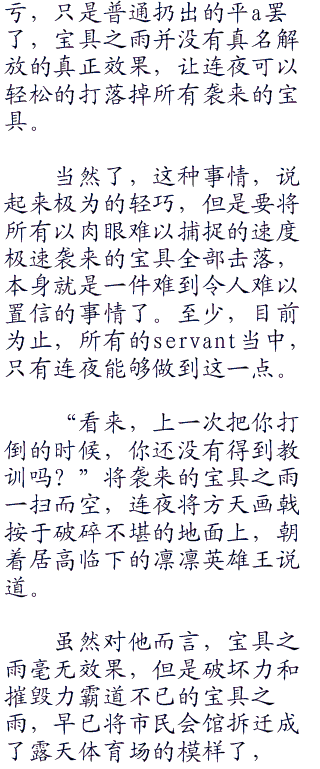 亏，只是普通扔出的平a罢
了，宝具之雨并没有真名解
放的真正效果，让连夜可以
轻松的打落掉所有袭来的宝
具。
当然了，这种事情，说
起来极为的轻巧，但是要将
所有以肉眼难以捕捉的速度
极速袭来的宝具全部击落，
本身就是一件难到令人难以
置信的事情了。至少，目前
为止，所有的servant当中，
只有连夜能够做到这一点。
“看来，上一次把你打
倒的时候，你还没有得到教
训吗？”将袭来的宝具之雨
一扫而空，连夜将方天画戟
按于破碎不堪的地面上，朝
着居高临下的凛凛英雄王说
道。
虽然对他而言，宝具之
雨毫无效果，但是破坏力和
摧毁力霸道不已的宝具之
雨，早已将市民会馆拆迁成
了露天体育场的模样了，